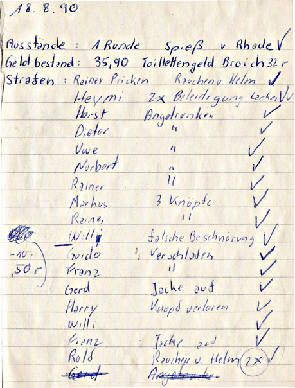 18.8.90
Ausstände: 1 Runde Spieß v Rhode ✓
Geldbestand: 35,90 Toillettengeld Broich 32
Strafen: Rainer Pricken Rauchen u Helm ✓
Heymi 2x Beleidigung ✓✓
Horst Angetrunken ✓
Dieter " ✓
Uwe " ✓
Norbert " ✓
Rainer " ✓
Markus 3 Knöpfe ✓
Rainer ✓
Willi falsche Beschnörung ✓
Guido Verschlafen ✓
Franz " ✓
50
Gerd Jacke auf ✓
Harry Knopf verloren ✓
Willi ✓
Franz Jacke auf ✓
Rold Rauchen u Helm 2x ✓
Gerd Angetrunken